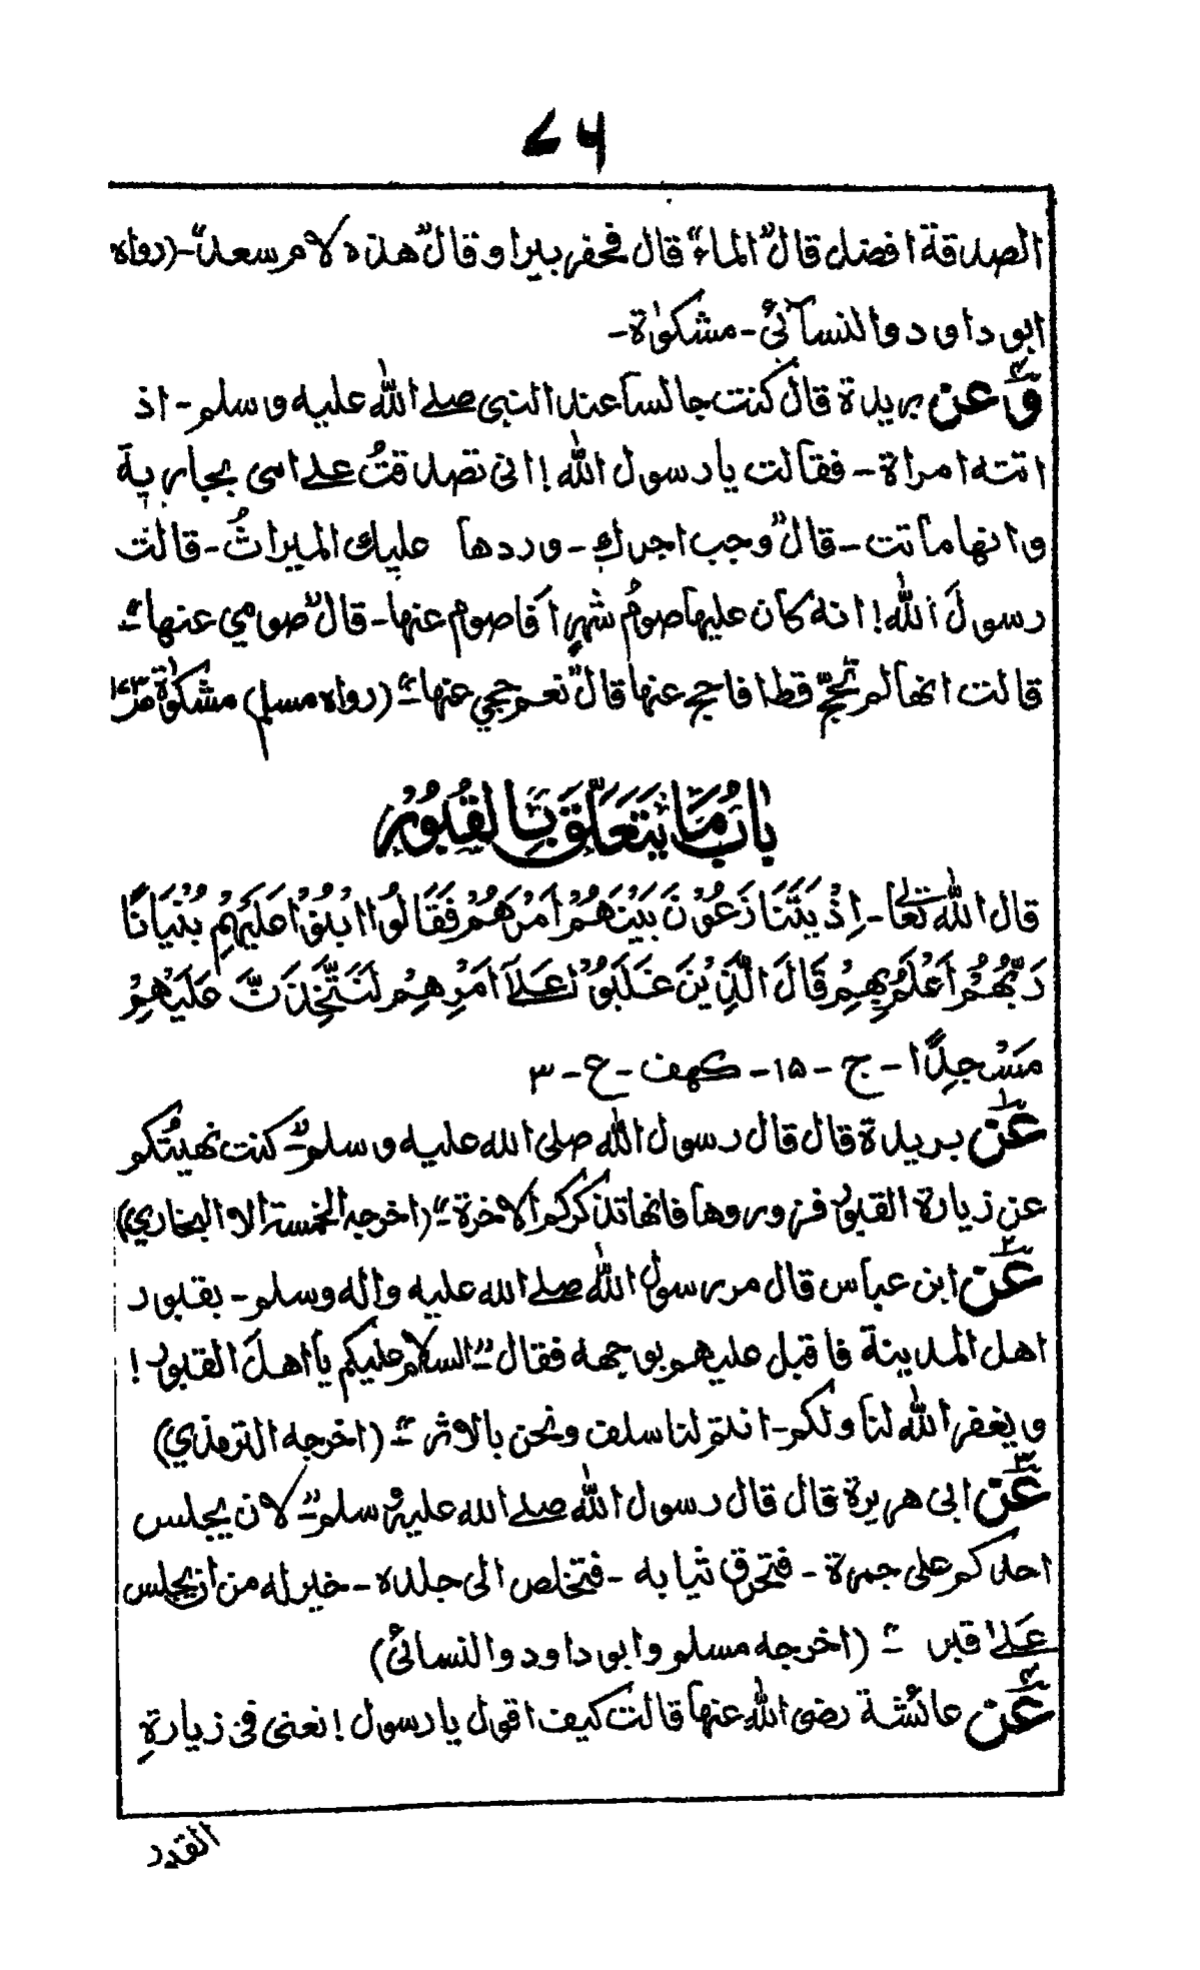 ۷۶
الصدقة افضل قال "الماء" قال فحفر بيرا و قال "هذه لام سعد" - (رواه
ابو داود والنسائیؒ - مشكوٰة -
وَعن بريدة قال كنت جالساً عند النبی صلے الله عليه وسلم - اذ
اتته امراة - فقالت يا رسول الله! انی تصدقتُ علے امی بجارية
وانها ماتت - قال "وجب اجرك - وردها عليك الميراثُ - قالت
رسولَ الله! انه كان عليها صومُ شهرٍ افاصوم عنها - قال "صومي عنها"
قالت انها لم تحجّ قط افاحج عنها قال "نعم حجي عنها" (رواه مسلم) مشكوٰة ص۱۷۳
بَابُ مَا يَتَعَلَّقَ بَالقُبُوْرْ
قال الله تعالیٰ - اِذْ يَتَنَازَعُوْنَ بَيْنَهُمْ اَمْرَهُمْ فَقَالُوا ابْنُوْا عَلَيْهِمْ بُنْيَانًا
رَبُّهُمْ اَعْلَمُ بِهِمْ قَالَ الَّذِيْنَ غَلَبُوْا عَلَے اَمْرِهِمْ لَنَتَّخِذَنَّ عَلَيْهِمْ
مَسْجِدًا - ج - ۱۵ - كهف - ع - ۳
عَن ۱ بريدة قال قال رسول الله صلی الله عليه وسلم "كنت نهيتكم
عن زيارة القبور فزوروها فانها تذكركم الاخرة" (اخرجه الخمسة الا البخاري)
عَن ۲ ابن عباس قال مر رسول الله صلے الله عليه واله وسلم - بقبور
اهل المدينة فاقبل عليهم بوجهه فقال "السلام عليكم يا اهلَ القبور!
ويغفر الله لنا ولكم - انتم لنا سلف ونحن بالاثر" (اخرجه الترمذي)
عَن ۳ ابی هريرة قال قال رسول الله صلے الله عليه وسلم "لان يجلس
احدكم علی جمرة - فتحرق ثيابه - فتخلص الی جلده - خير له من ان يجلس
عَلےٰ قبر" (اخرجه مسلم وابو داود والنسائیؒ)
عَن ۴ عائشة رضی الله عنها قالت كيف اقول يا رسول! نعنی فی زيارةِ
القبور